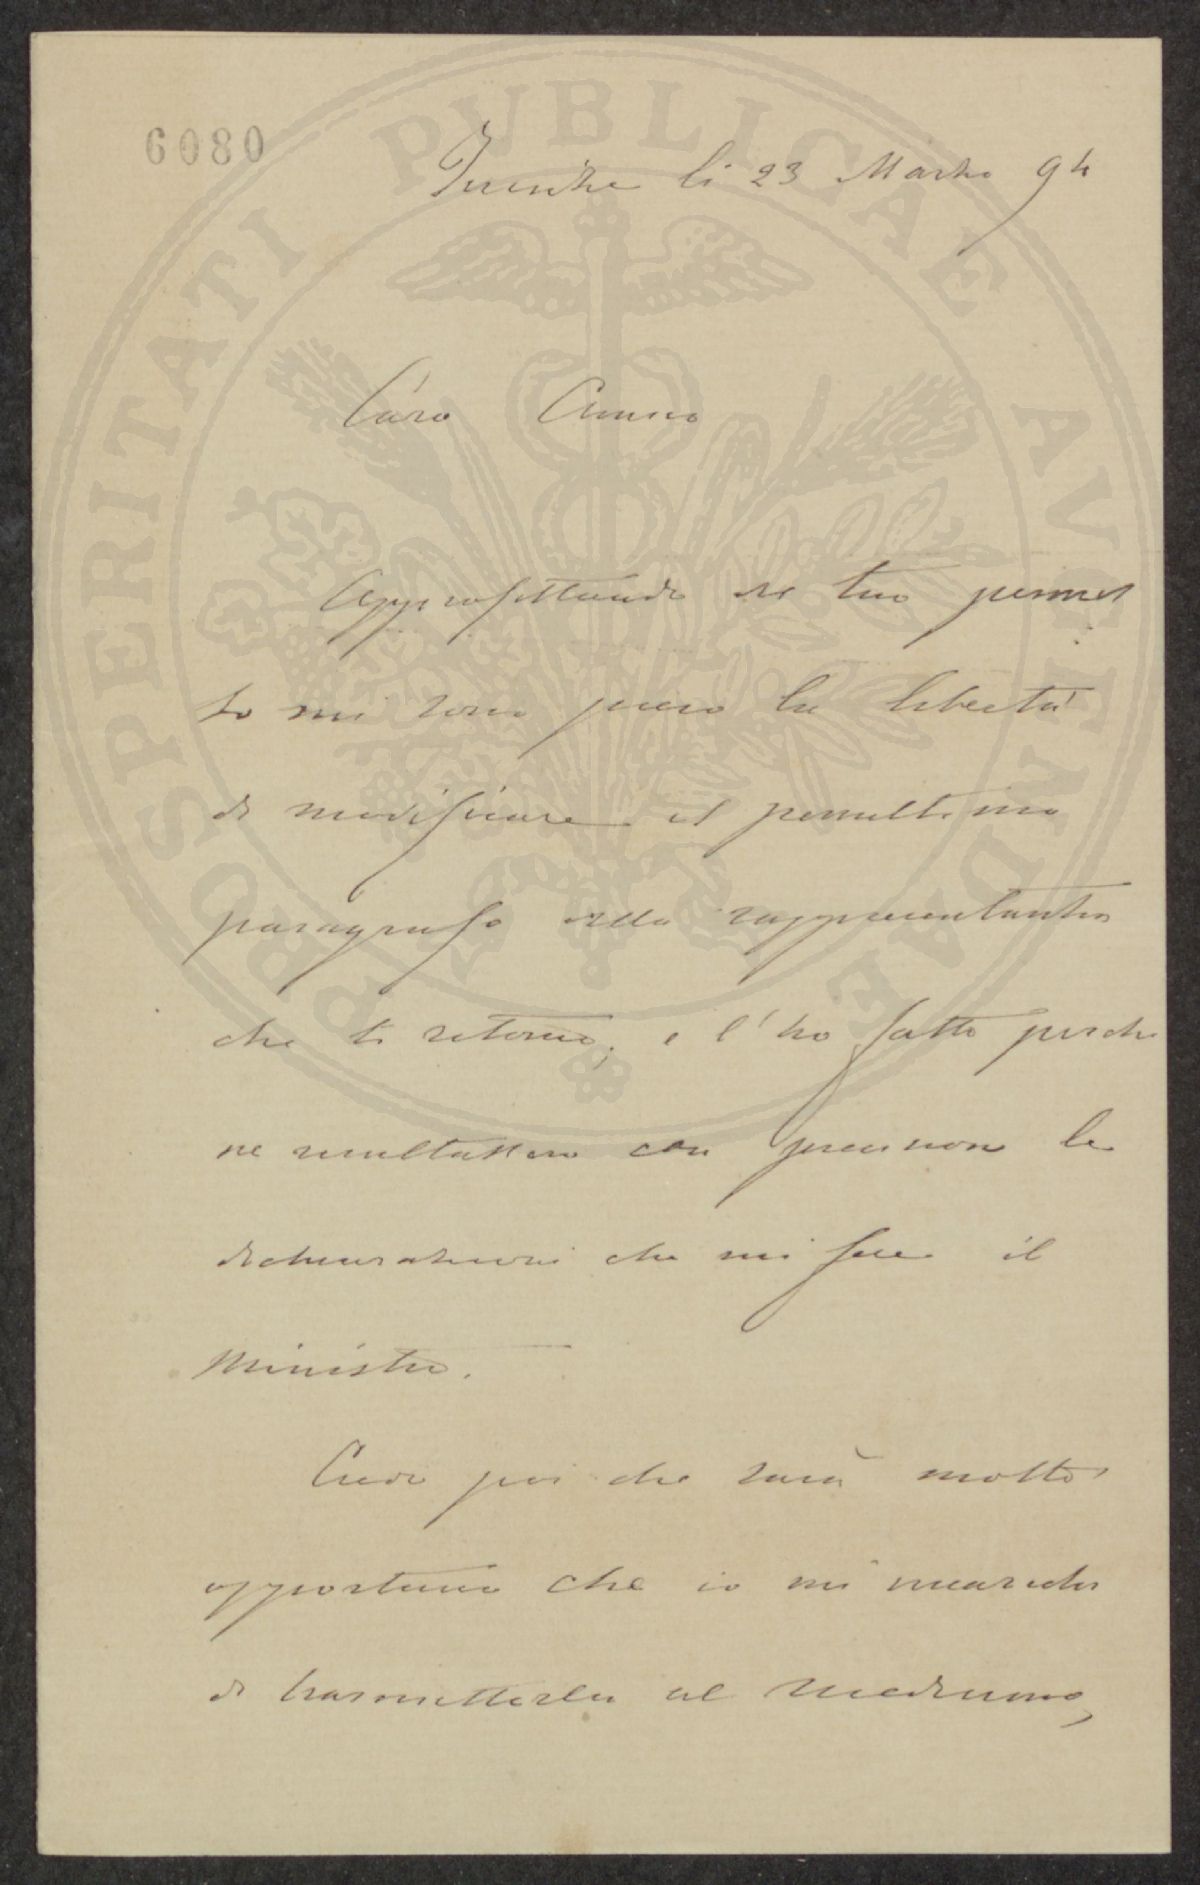 6080
Firenze li 23 Marzo 94
Caro Amico
Approfittando del tuo permes
so mi sono preso la libertà
di modificare il penultimo
paragrafo della rappresentanza
che ti ritorno; e l'ho fatto perchè
ne resultassero con precisione le
dichiarazioni che mi fece il
Ministro.
Credo poi che sarà molto
opportuno che io mi incarichi
di trasmetterla al medesimo,
PROSPERITATI PVBLICAE AVGENDAE